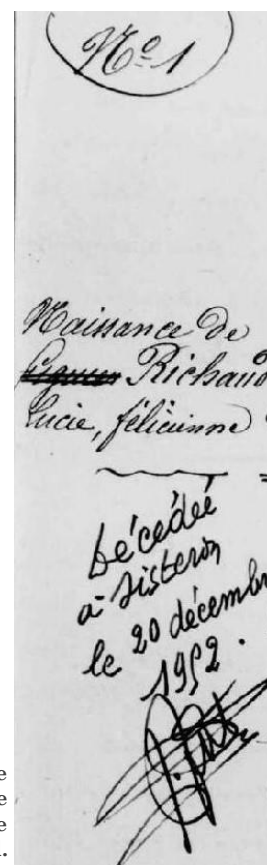 Nº 1
Naissance de
Richaud
Lucie, félicienne
Décédée
à Sisteron
le 20 décembre
1952.
e
e
e
.